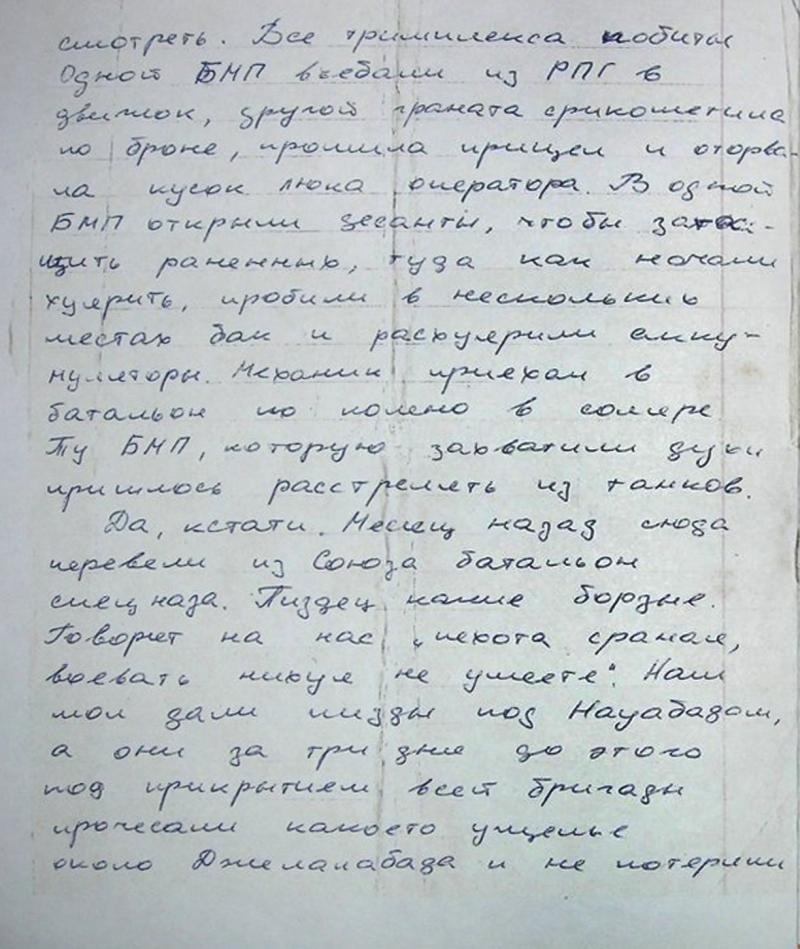 смотреть. Все тримплекса побиты
Одной БМП въебали из РПГ в
движок, другой граната срикошетила
по броне, прошила прицел и оторва-
ла кусок люка оператора. В одной
БМП открыли десанты, чтобы зата-
щить раненных, туда как начали
хуярить, пробили в нескольких
местах бак и расхуярили акку-
муляторы. Механик приехал в
батальон по колено в соляре
Ту БМП, которую захватили духи
пришлось расстрелять из танков.
Да, кстати. Месяц назад сюда
перевели из Союза батальон
спецназа. Пиздец какие борзые.
Говорят на нас „пехота сраная,
воевать нихуя не умеете". Нам
мол дали пизды под Науабадом,
а они за три дня до этого
под прикрытием всей бригады
прочесали какоето ущелье
около Джелалабада и не потеряли